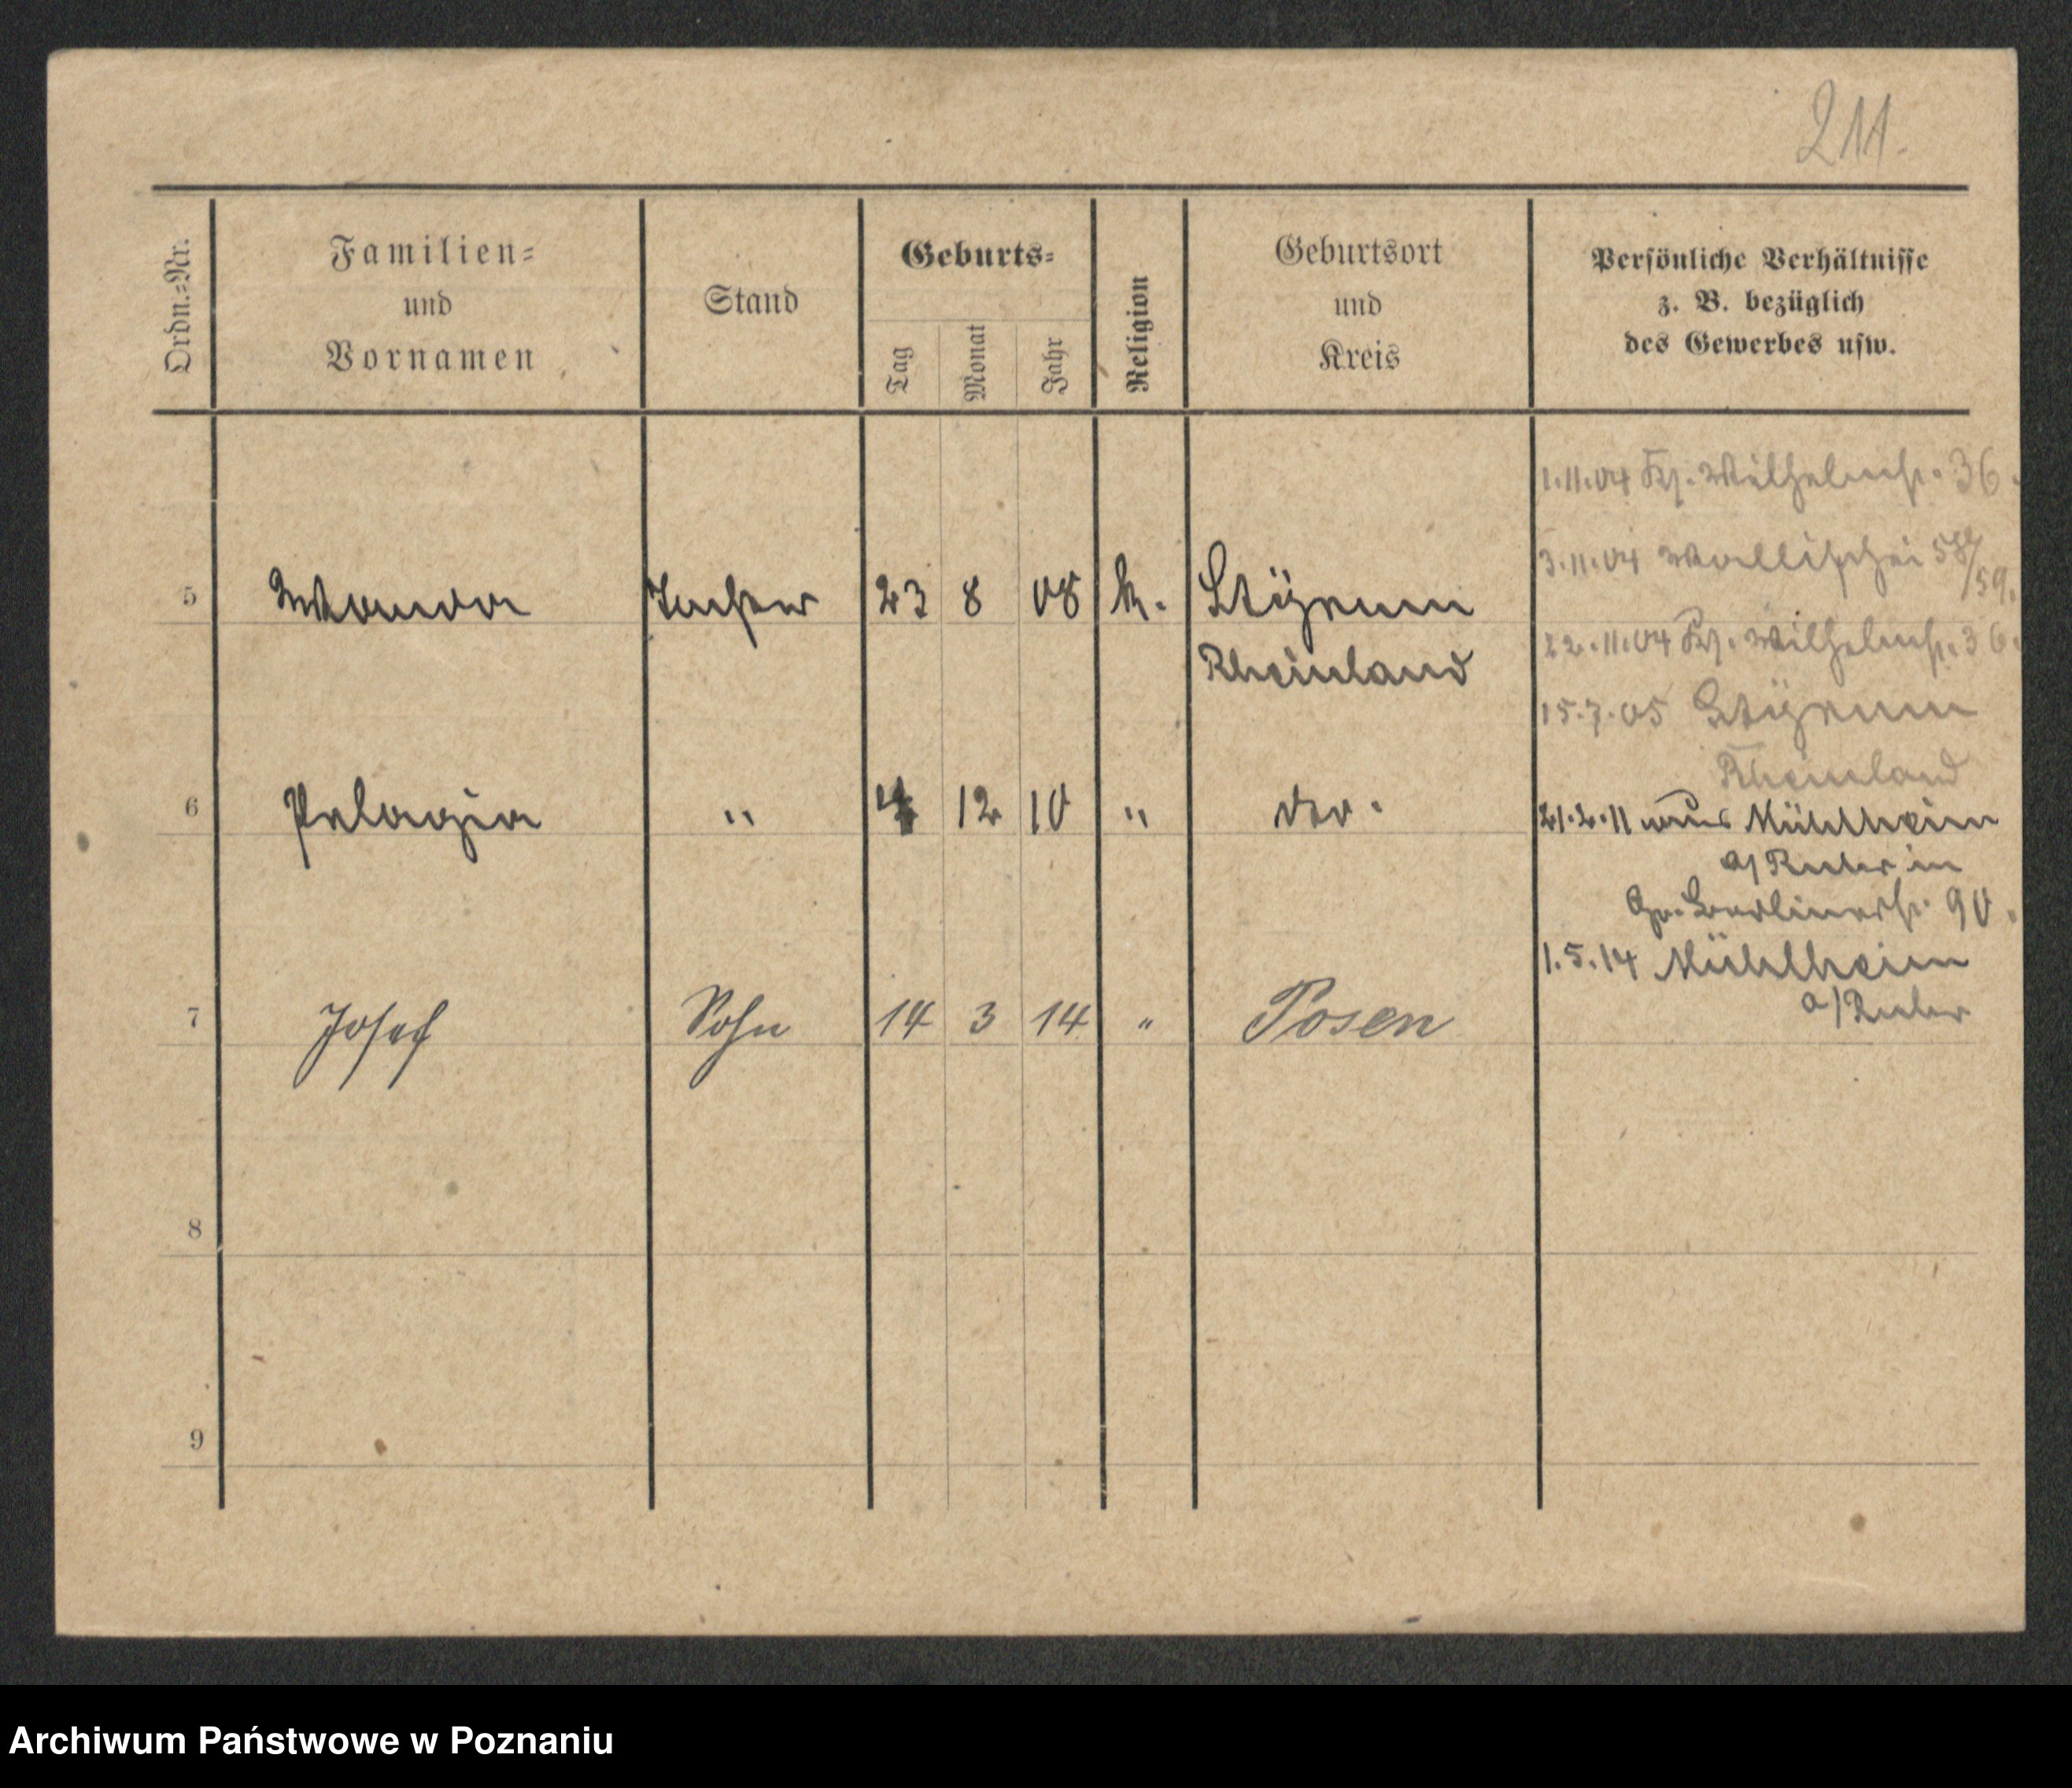 211.
Ordn.-Nr.
Familien-
und
Vornamen
Stand
Geburts-
Tag
Monat
Jahr
Religion
Geburtsort
und
Kreis
Persönliche Verhältnisse
z. B. bezüglich
des Gewerbes usw.
1.11.04 Kl. Wilhelmstr. 36.
3.11.04 Wallischei 58/59.
5 Wanda Tochter 23 8 08 k. Styrum
Rheinland
22.11.04 Kl. Wilhelmstr. 36.
15.7.05 Styrum
Rheinland
6 Pelagia " 4 12 10 " do.
21.2.11 aus Mühlheim
a/Ruhr in
Gr. Berlinerstr. 90.
1.5.14 Mühlheim
a/Ruhr
7 Josef Sohn 14 3 14 " Posen
8
9
Archiwum Państwowe w Poznaniu